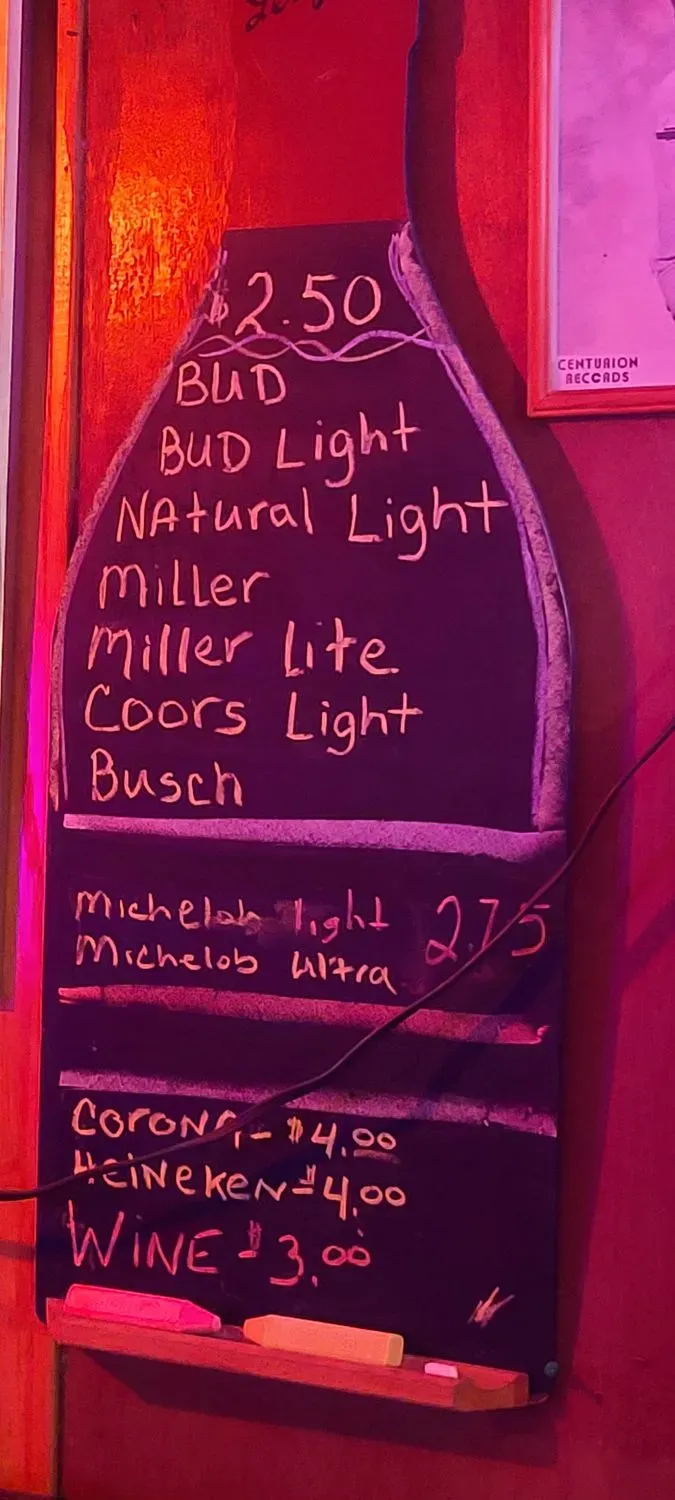 $2.50
BUD
BUD Light
NAtural Light
Miller
Miller Lite
Coors Light
Busch
Michelob light
Michelob ultra 2.75
CORONA - $4.00
HEiNeKeN - $4.00
WiNE - $3.00
CENTURION
RECORDS